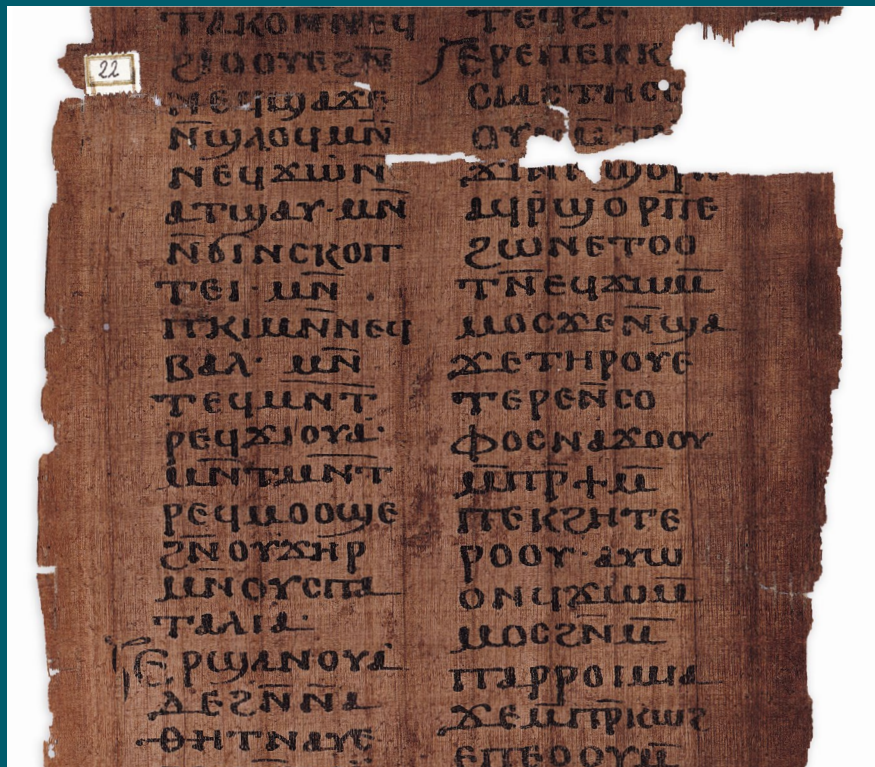 22
ⲧⲁⲕⲟⲙⲛ̄ⲛⲉϥ
ϩⲓⲟⲟⲩⲉϩⲛ̄
ⲛⲉϥϣⲁϫⲉ
ⲛ̄ϣⲗⲟϥⲙⲛ̄
ⲛⲉϥϫⲱⲛ̄
ⲁⲧϣⲁⲩ·ⲙⲛ̄
ⲛ̄ϭⲓⲛⲥⲕⲟⲡ
ⲧⲉⲓ·ⲙⲛ̄
ⲡⲕⲓⲙⲛ̄ⲛⲉϥ
ⲃⲁⲗ· ⲙⲛ̄
ⲧⲉϥⲙⲛ̄ⲧ
ⲣⲉϥϫⲓⲟⲩⲁ·
ⲙⲛ̄ⲧⲙⲛ̄ⲧ
ⲣⲉϥⲙⲟⲟϣⲉ
ϩⲛ̄ⲟⲩϫⲏⲣ
ⲙⲛ̄ⲟⲩⲥⲡⲁ
ⲧⲁⲗⲓⲁ·
ⲉⲣϣⲁⲛⲟⲩⲁ
ⲇⲉϩⲛ̄ⲛⲁ
ⲑⲏⲧⲛⲁⲩⲉ
ⲧⲉϥϩⲉ·
ⲉⲣⲉⲡⲉⲕⲕ
ⲥⲓⲁⲥⲧⲏⲥ
ⲟⲩ
ϫⲓⲛ ϣⲟⲣⲡ
ⲁϥⲣ̄ϣⲟⲣⲡ̄ⲉ
ϩⲱⲛⲉⲧⲟⲟ
ⲧⲛ̄ⲉϥϫⲱⲙ̄
ⲙⲟⲥϫⲉⲛ̄ϣⲁ
ϫⲉⲧⲏⲣⲟⲩⲉ
ⲧⲉⲣⲉⲛ̄ⲥⲟ
ⲫⲟⲥⲛⲁϫⲟⲟⲩ
ⲙ̄ⲡⲣ̄ϯⲙ̄
ⲡⲉⲕϩⲏⲧⲉ
ⲣⲟⲟⲩ·ⲁⲩⲱ
ⲟⲛϥϫⲱⲙ̄
ⲙⲟⲥϩⲛ̄ⲙ̄
ⲡⲁⲣⲣⲟⲓⲙⲓⲁ
ϫⲉⲙ̄ⲡⲣ̄ⲕⲱϩ
ⲉⲡⲉⲟⲟⲩⲙ̄